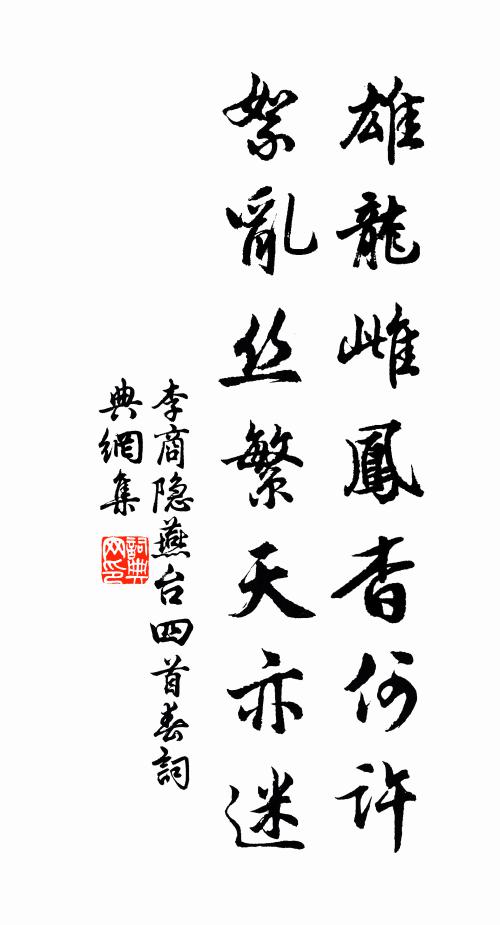 雄龍雌鳳杳何許
絮亂丝繁天亦迷
李商隐燕台四首春詞
典網集
詞典网印